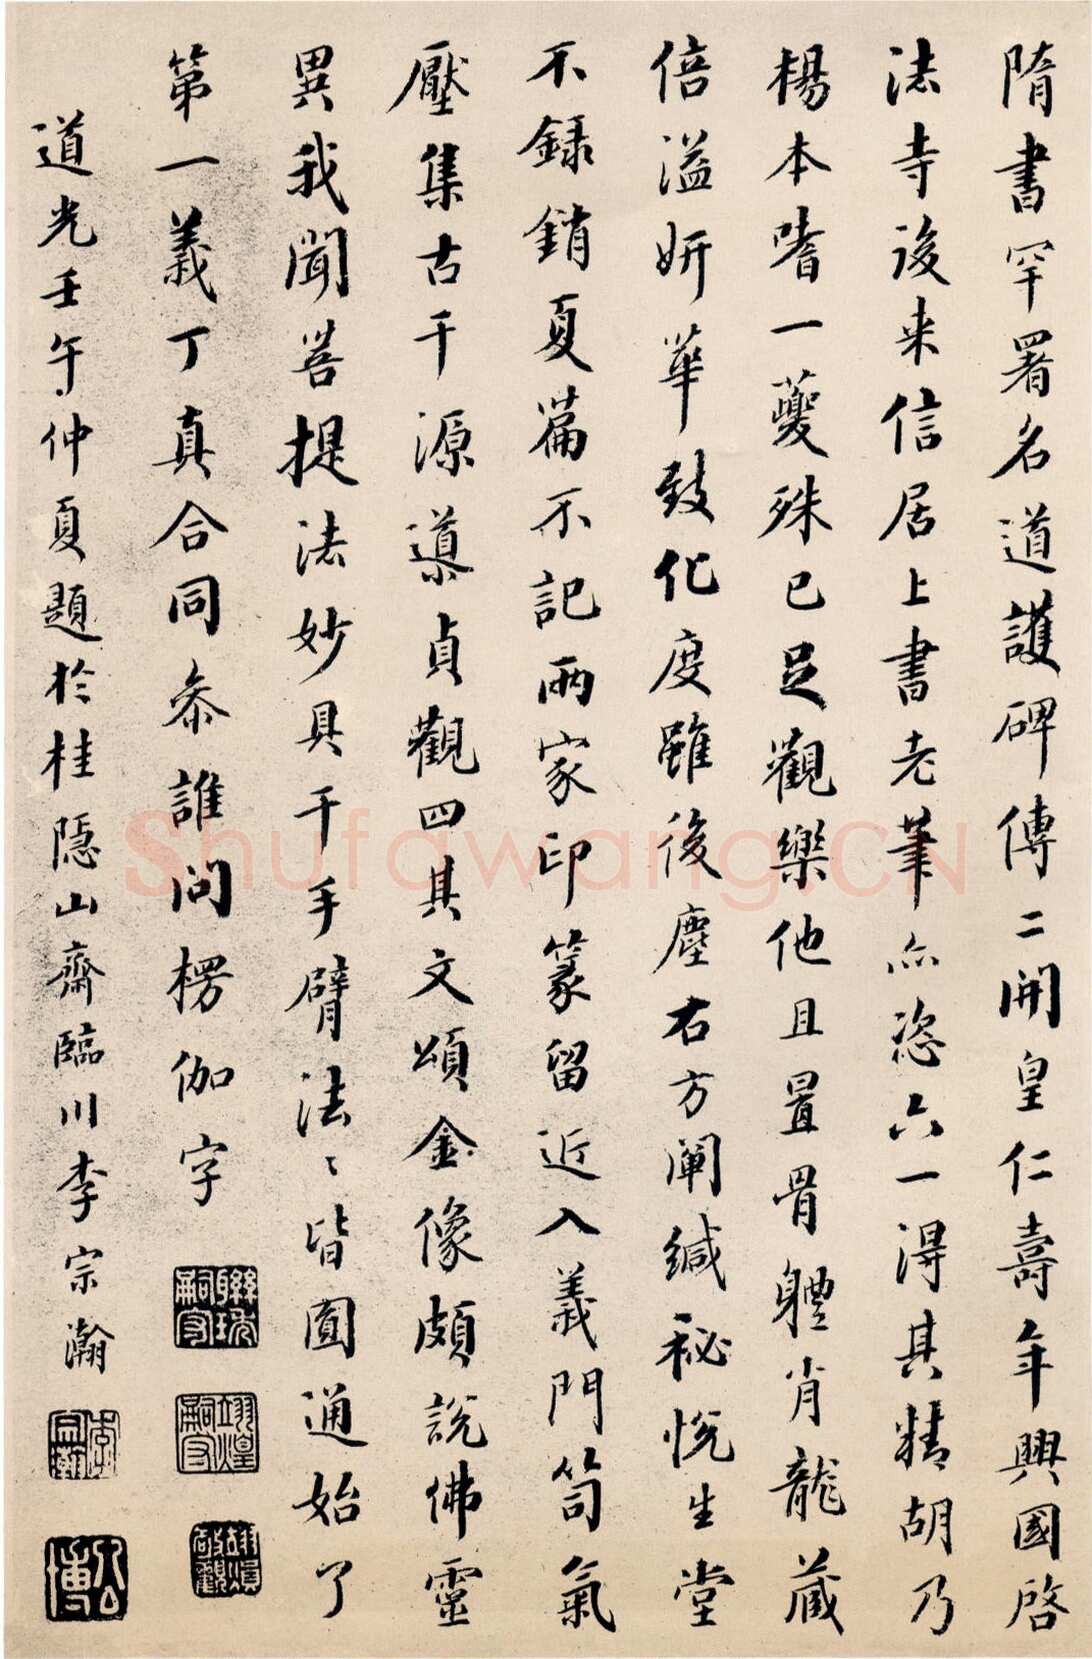 隋書罕署名道護碑傳二開皇仁壽年興國啓
法寺後来信居上書老筆亦恣六一得其精胡乃
楊本嗜一夔殊已足觀樂他且置骨體肖龍藏
倍溢妍華致化度雖後塵右方闡緘秘悅生堂
不錄銷夏篇不記兩家印篆留近入義門笥氣
壓集古千源導貞觀四其文頌金像頗說佛靈
異我聞菩提法妙具千手臂法〻皆圓通始了
第一義丁真合同叅誰問楞伽字
道光壬午仲夏題於桂隱山齋臨川李宗瀚
Shufawang.CN